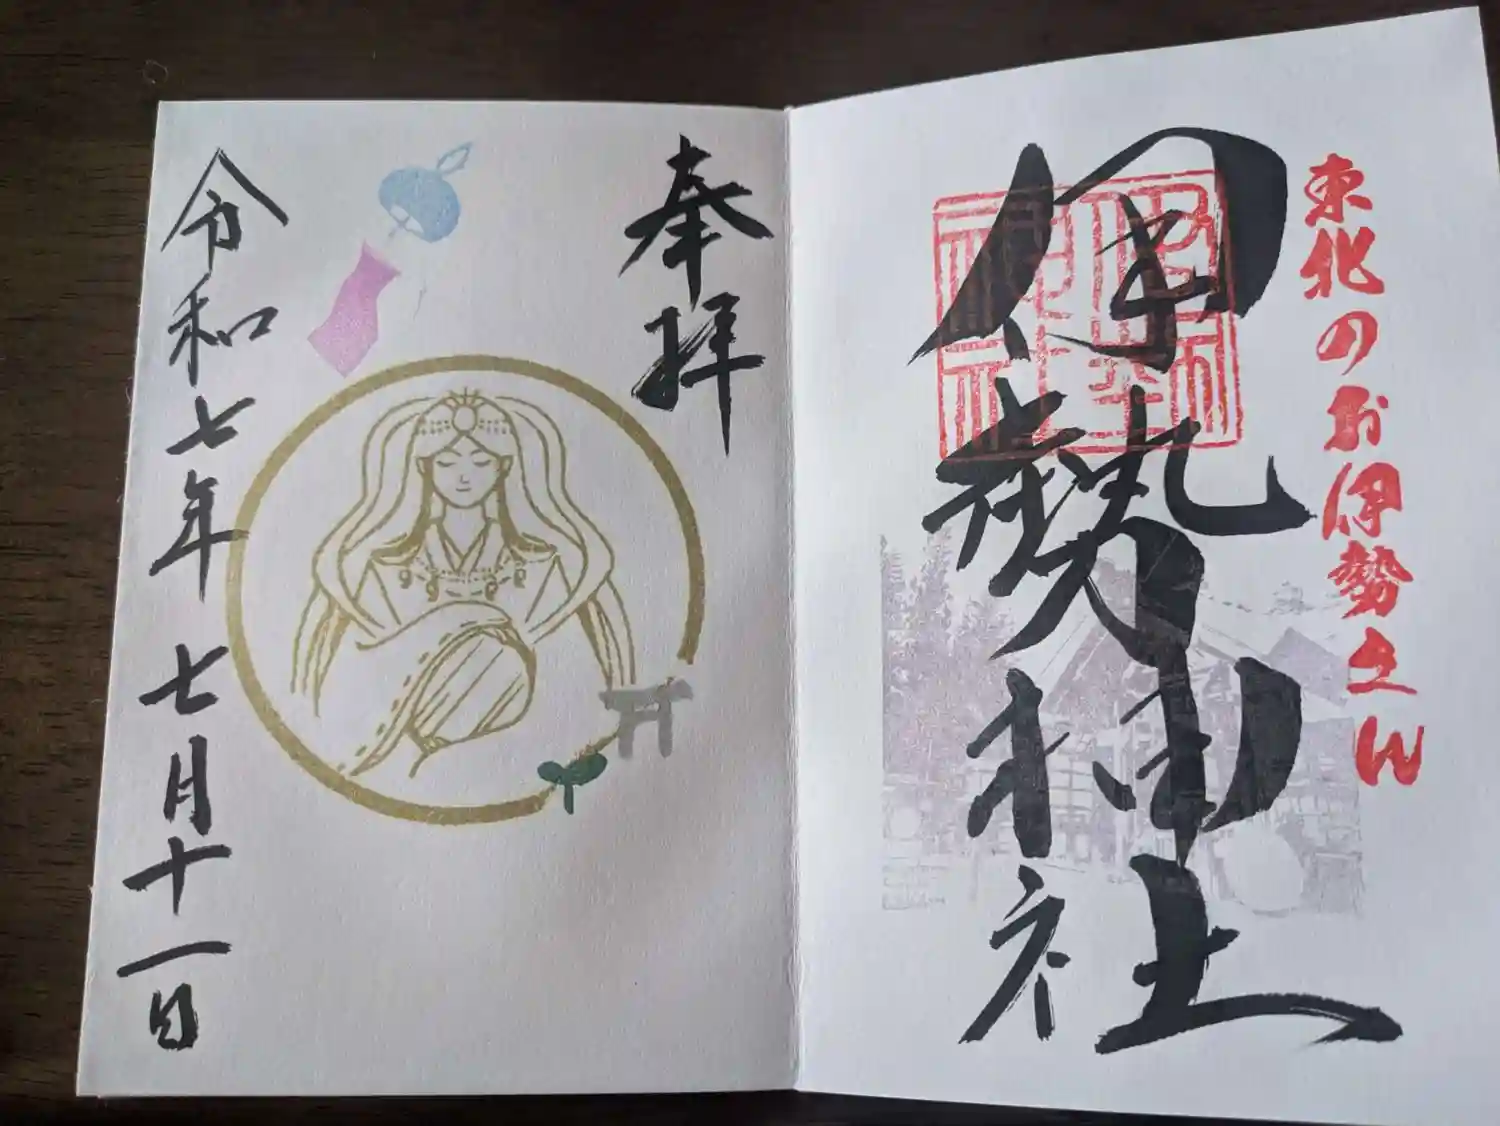 東北のお伊勢さん
伊勢神社
奉拝
令和七年七月十一日